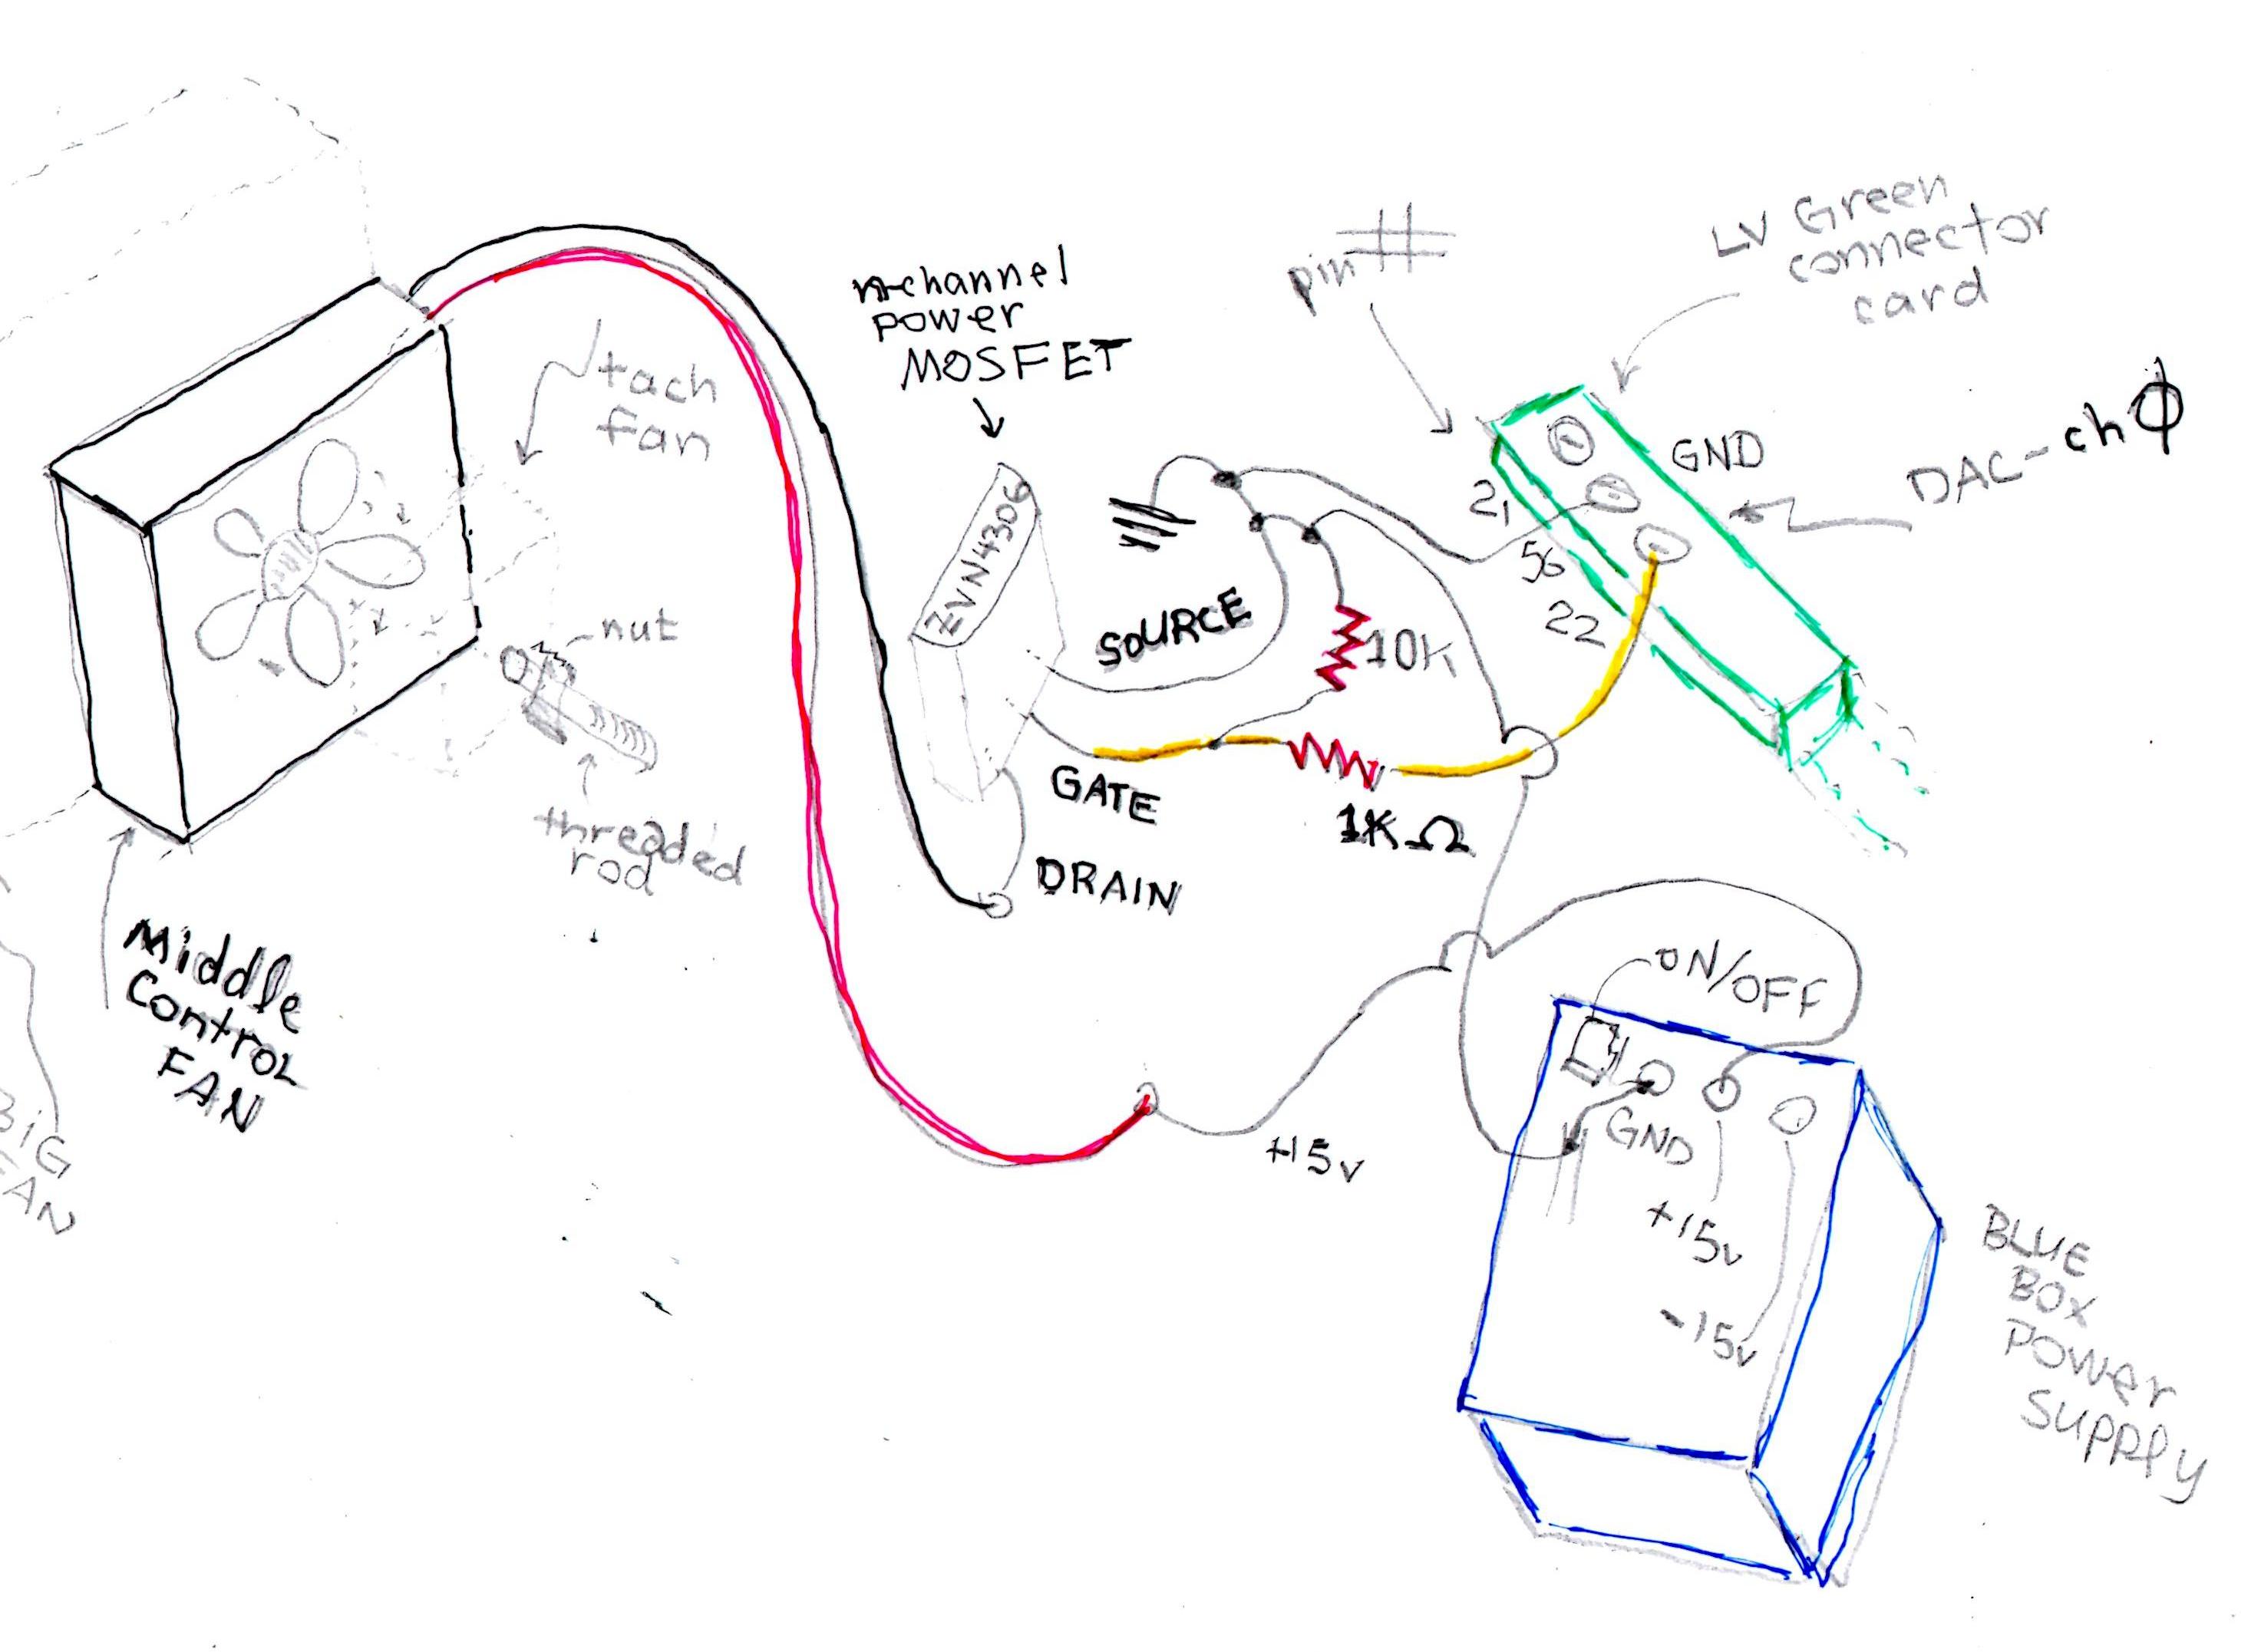 n-channel
power
MOSFET
pin #
LV Green
connector
card
tach
fan
ZVN4306
GND
DAC-chϕ
21
56
22
SOURCE
10K
nut
GATE
1KΩ
threaded
rod
DRAIN
Middle
Control
FAN
BIG
FAN
ON/OFF
+15v
GND
+15v
-15v
BLUE
BOX
POWER
SUPPLY